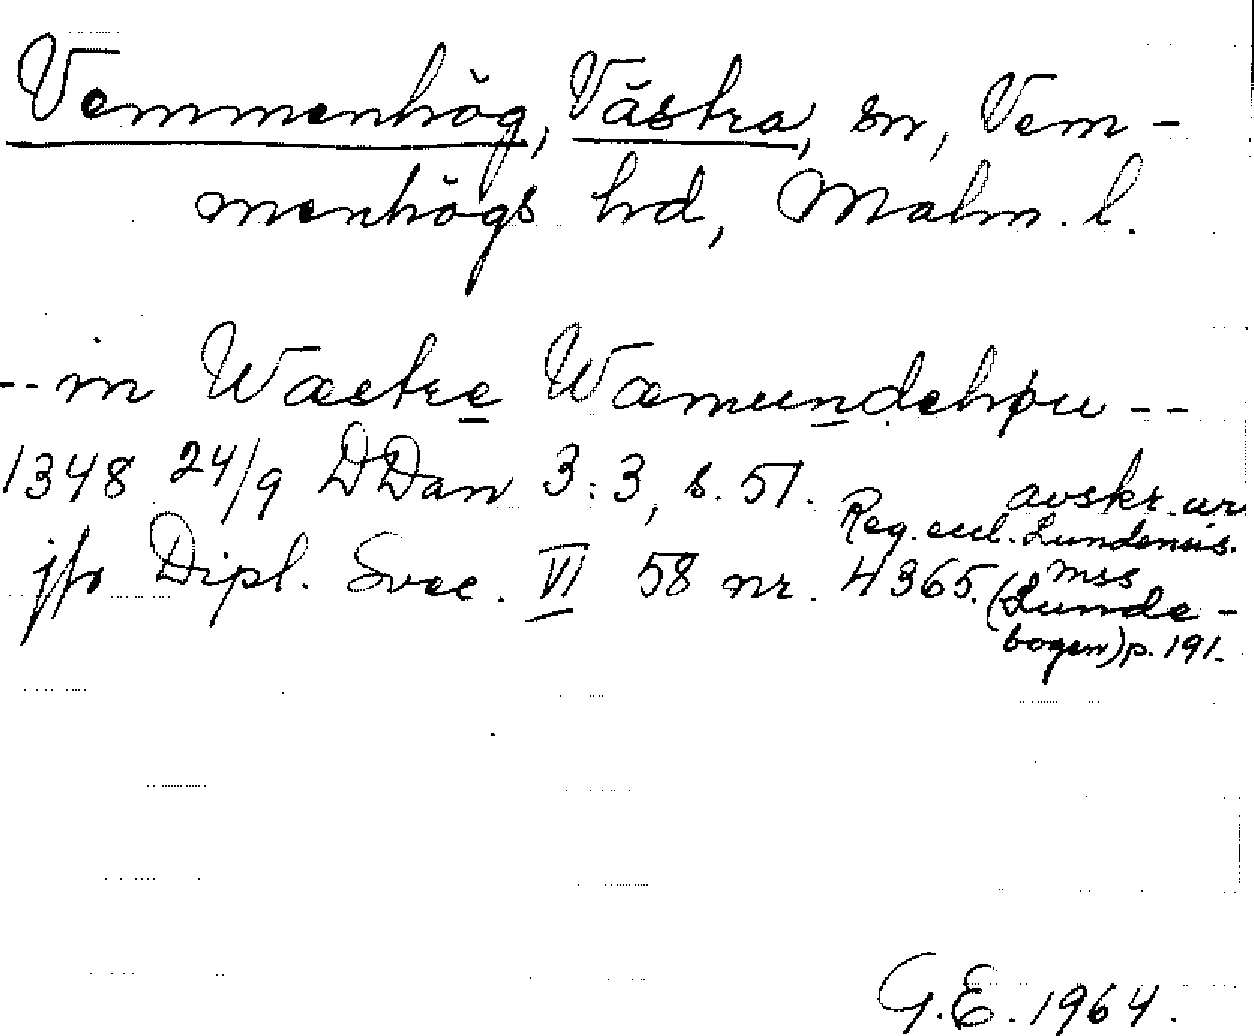 Vemmenhög, Västra, sn, Vem-
menhögs hd, Malm. l.
-- in Wæstre Wæmundehøu --
1348 24/9 DDan 3:3, s. 51.
avskr. ur
Reg. eccl. Lundensis.
jfr Dipl. Svec. VI 58 nr. 4365.
mss
(Lunde-
bogen) p. 191.
G.E. 1964.